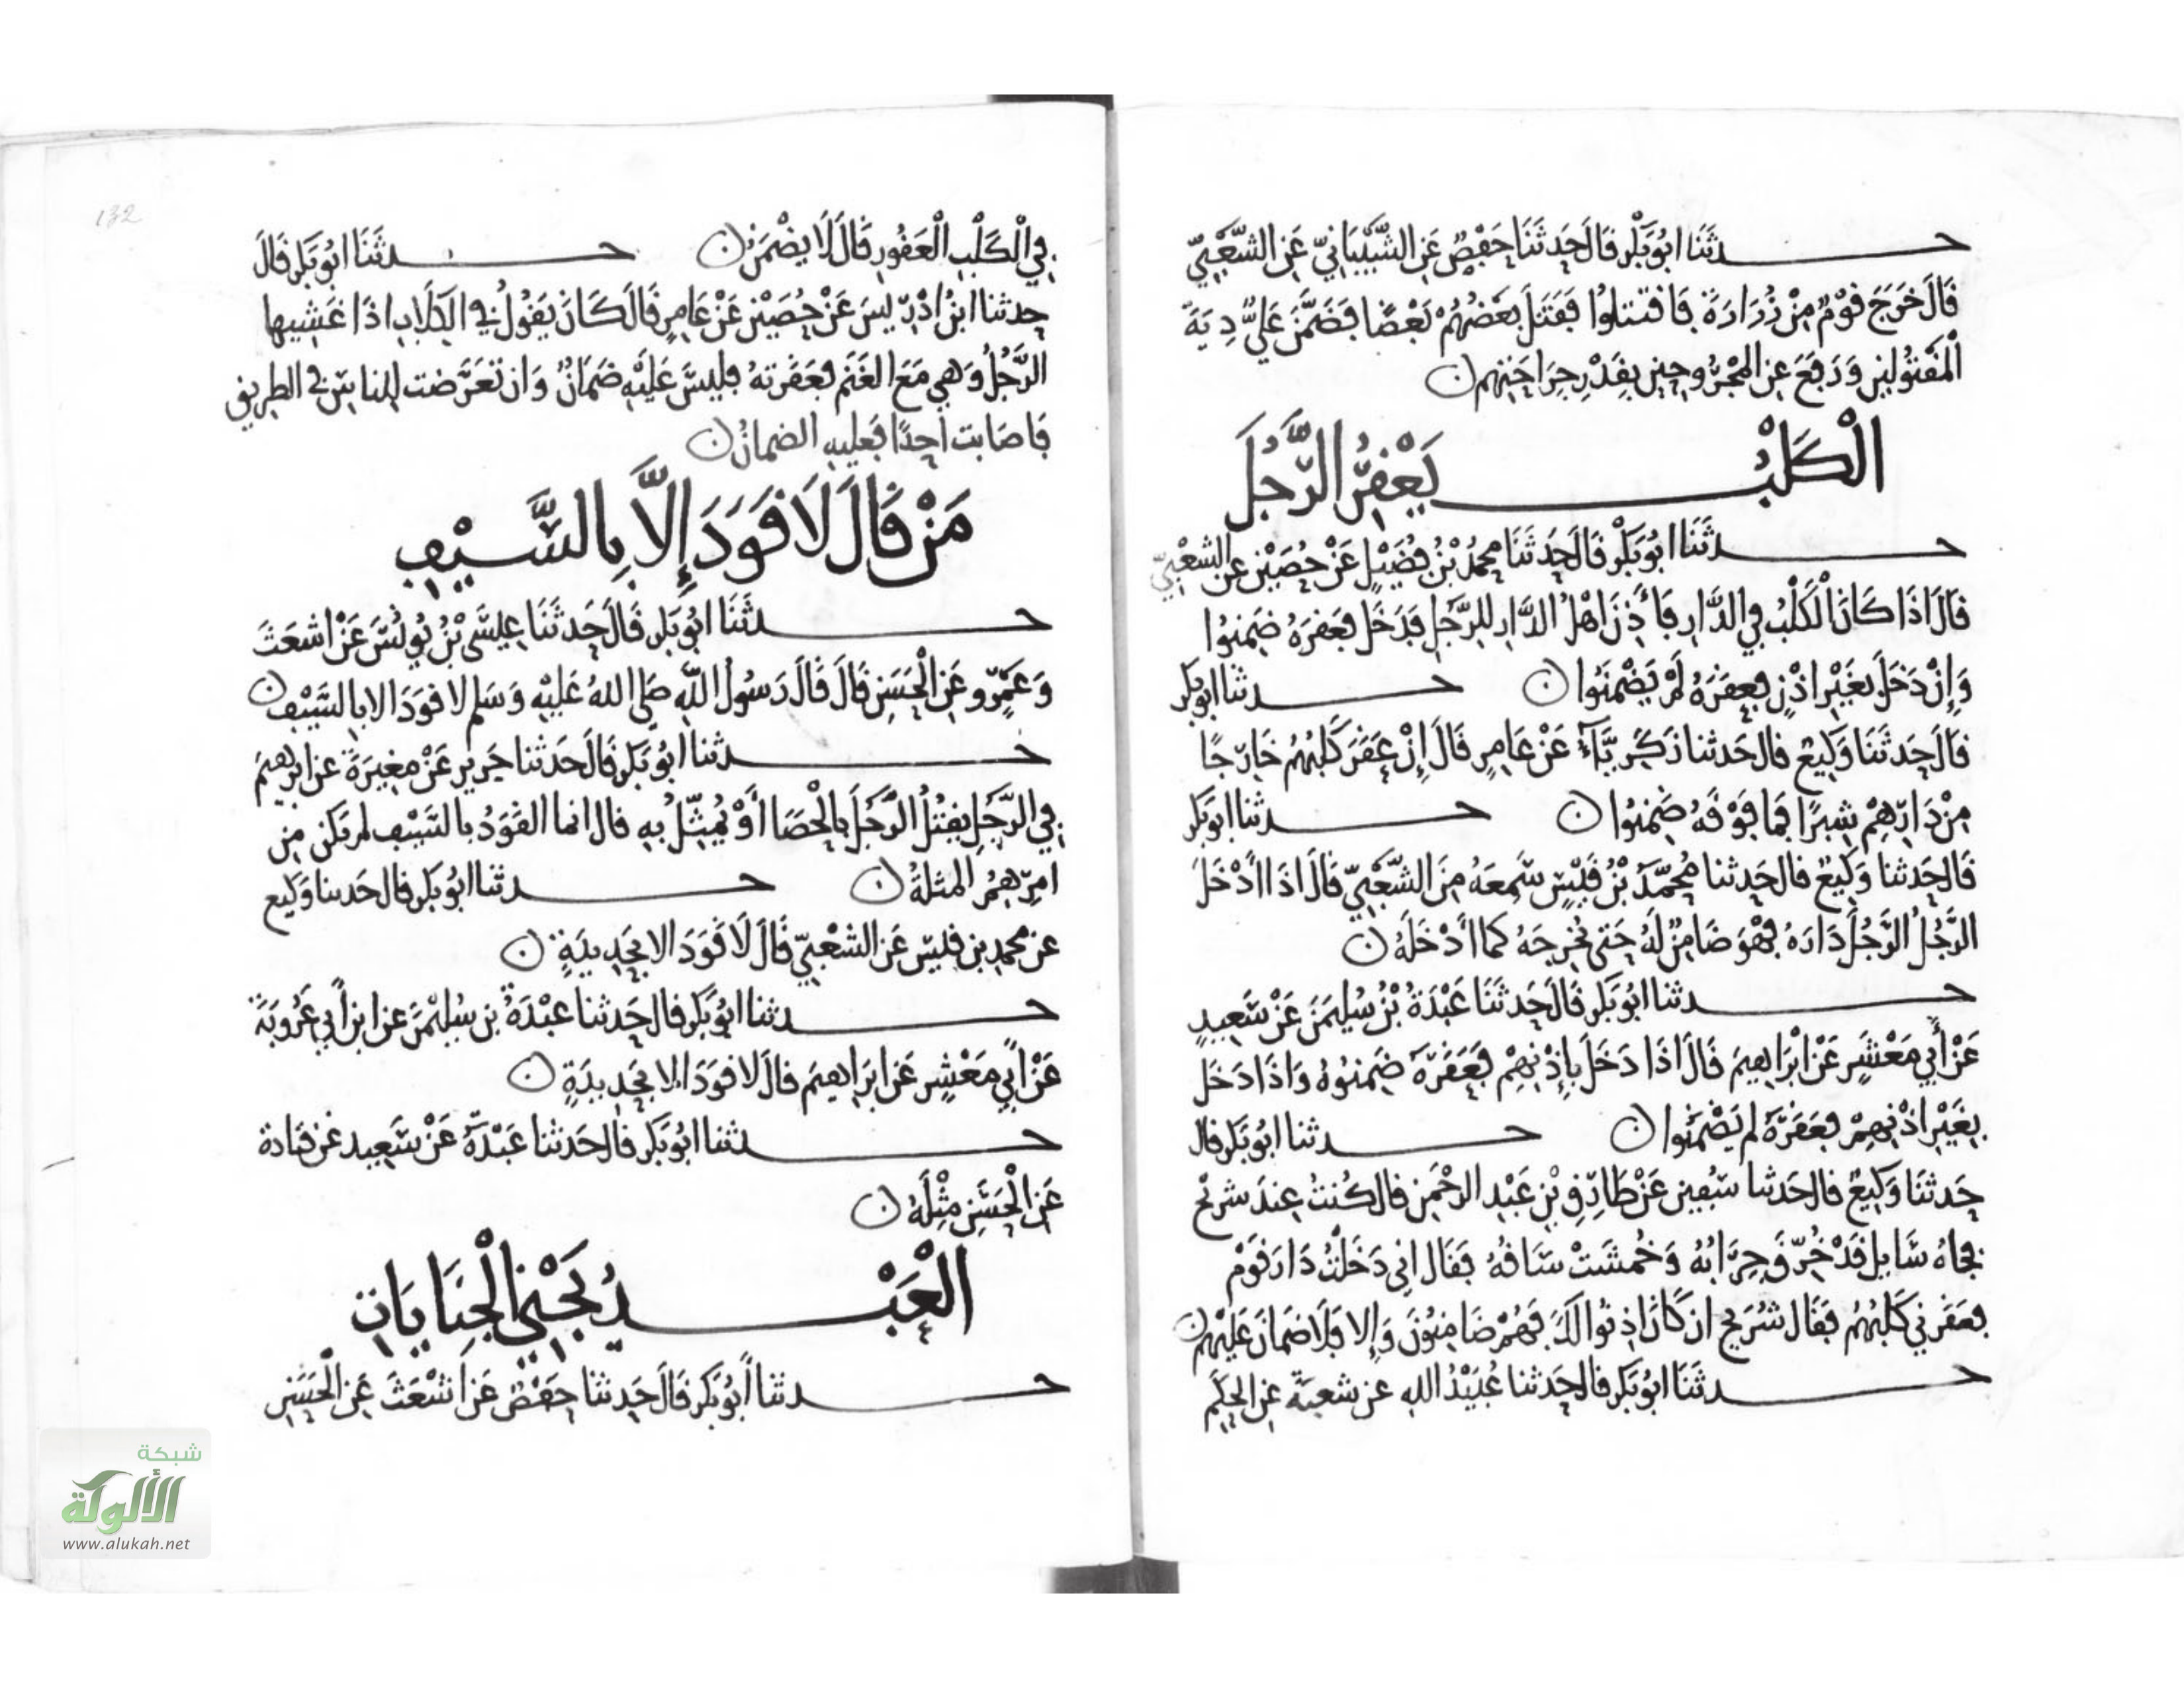 حدثنا ابُو بَكْر قَالَ حَدثَنَا حَفْصٌ عَنِ الشَّيْبَانِيّ عَنِ الشَّعْبِيّ
قَالَ خَرَجَ قَوْمٌ مِنْ زُرَارَةَ فَاقتتلوُا فَقَتَلَ بَعْضُهُمْ بَعْضًا فضَمَّنَ عَليٌّ دِيَةَ
الْمَقْتُولينِ وَرَفعَ عنِ المجْرُوحِين بِقَدْرِ جِرَاحَتِهِم ن
الْكَلْبُ يَعْقِرُ الرَّجُلَ
حدثَنَا ابُو بَكْر قَالَ حَدثَنَا محمدُ بْنُ فُضَيْلٍ عَنْ حُصَيْنٍ عن الشعْبيّ
قَالَ اذَا كَانَ الْكَلْبُ فِي الدَّارِ فَأَذِنَ اهْلُ الدَّارِ للرَّجُلِ فَدَخَلَ فعَقرَهُ ضَمِنوُا
وَإِنْ دَخَلَ بغَيْرِ اذْنٍ فعَقَرَهُ لَمْ يَضْمَنُوا ن حدثنا ابوبكر
قَالَ حَدثَنَا وَكِيع قال حَدثنا زَكَرِيَّاءُ عَنْ عَامِرٍ قَالَ إِنْ عَقَرَ كَلْبُهُمْ خَارِجًا
مِنْ دَارِهِمْ شِبرًا فمَا فَوْقَهُ ضَمِنُوا ن حدثنا ابوبَكر
قَال حَدثنا وَكِيعٌ قال حَدثنا مُحمَّدُ بْنُ قَيْسٍ سَمِعَهُ مِنَ الشَّعْبيّ قَالَ اذَا ادْخَلَ
الرَّجُلُ الرَّجُلَ دَارَهُ فهْوَ ضَامِنٌ لَهُ حَتى يُخرِجَهُ كما أدْخَلَهُ ن
حدثنا ابُو بَكر قَالَ حَدثَنَا عَبْدَةُ بْنُ سُلَيْمَنَ عَنْ سَعِيدٍ
عَنْ أَبي مَعْشَرٍ عَنْ ابْرَاهِيمَ قَالَ اذَا دَخَلَ بإِذْنِهِمْ فعَقَرَهُ ضَمِنُوهُ وَاذَا دَخَلَ
بِغَيْرِ اذْنِهِمْ فعَقَرَهُ لم يَضْمَنُوا ن حدثنا ابُو بَكر قال
حَدثنَا وَكِيعٌ قال حَدثنا سُفين عَنْ طَارِقِ بْنِ عَبْدِ الرحْمَنِ قال كُنتُ عِندَ شريْح
فجاهُ سَايِل قَدْ خُرِّقَ جِرَابُهُ وَخُمشَتْ سَاقُهُ فقَال اني دَخَلتُ دَارَ قَوْمٍ
فعَقَرني كَلْبُهُمْ فقَال شُرَيح ان كَانَ اذِنُوا لَكَ فهُمْ ضَامِنُونَ وَإِلا فَلَا ضَمانَ عَليْهِمْ ن
حدثَنا ابُو بَكر قال حَدثنا عُبَيْدُ اللهِ عن شعبَةَ عنِ الحكَمِ
132
فِي الْكَلْبِ الْعَقُورِ قَالَ لَا يضْمَنُ ن حدثَنَا ابُو بَكر قَالَ
حدثنا ابنُ ادْرِيسَ عَنْ حُصَيْنٍ عَنْ عَامِرٍ قَالَ كَانَ يَقُولُ في الكِلَابِ اذَا غَشِيها
الرَّجُلُ وَهي مَعَ الغَنَم فعَقَرتهُ فليسَ عَلَيْهِ ضَمَانٌ وَان تعَرَّضت للِناسِ في الطريق
فاصَابت احَدًا فعَليهِ الضمانُ ن
مَنْ قَالَ لَا قَوَدَ إِلَّا بِالسَّيْفِ
حدثَنَا ابُو بَكر قَالَ حَدثَنَا عِيسَى بْنُ يُونُسَ عَنْ اشعَثَ
وَعَمْرٍو عَنِ الْحَسَنِ قَالَ قَالَ رَسُولُ اللهِ صَلى اللهُ عَلَيْهِ وَسَلم لا قوَدَ الا بالسَّيْف ن
حدثنا ابُو بَكر قَالَ حَدثنا جَرير عَنْ مغِيرَةَ عن ابرهيمَ
فِي الرَّجُلِ يقتلُ الرَّجُلَ بالْحَصَا أَوْ يُمثِّلُ بهِ قال انما القَوَدُ بالسَيْف لم يَكن من
امرِهمُ المثلةُ ن حدثنا ابُو بَكر قال حَدثنا وَكيع
عن محمدِ بن قيسٍ عَنِ الشعْبيّ قَالَ لَا قَوَدَ الا بحَدِيدَةٍ ن
حدثنا ابُو بَكر قال حَدثنا عَبْدَةُ بن سُليْمنَ عن ابن أبي عَرُوبَةَ
عَنْ ابي مَعْشرٍ عَن ابرَاهيمَ قالَ لا قوَدَ الا بحَدِيدَةٍ ن
حدثنا ابُو بَكر قال حَدثنا عَبْدَةُ عَنْ سَعِيد عن قتادة
عَنِ الْحَسَنِ مِثْلَهُ ن
الْعَبْدُ يَجْنِي الْجِنَايَاتِ
حدثنا أبُو بَكر قَالَ حَدثنا حَفصٌ عَن اشْعَثَ عَنِ الْحَسَنِ
شبكة
الألوكة
www.alukah.net